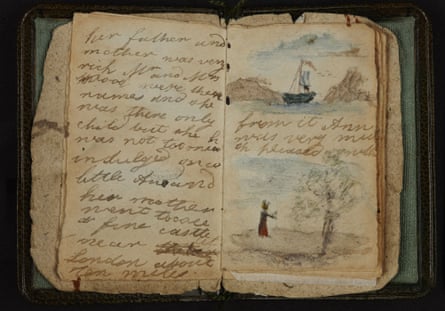 her father and
mother was very
rich Mr and Mrs
Wood were their
names and she
was there only
child but she
was not too much
indulged once
little Ann and
her mother
went to see
a fine castle
near
London about
ten miles
from it Ann
was very mu
ch pleased with